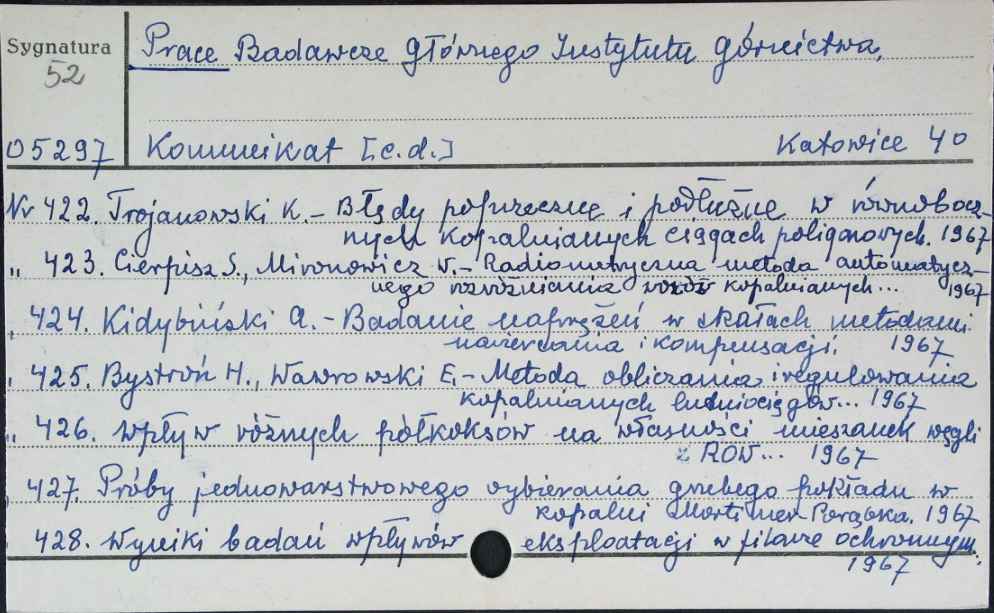 Sygnatura
52
Prace Badawcze Głównego Instytutu Górnictwa,
05297 Komunikat [c.d.] Katowice 40
Nr 422. Trojanowski K. - Błędy poprzeczne i podłużne w równobocz-
nych kopalnianych ciągach poligonowych. 1967
" 423. Cierpisz S., Mironowicz W. - Radiometryczna metoda automatycz-
nego rozróżniania wozów kopalnianych... 1967
" 424. Kidybiński A. - Badanie naprężeń w skałach metodami
nawiercania i kompensacji. 1967
" 425. Bystroń H., Wawrowski E. - Metoda obliczania i regulowania
kopalnianych lutniociągów... 1967
" 426. Wpływ różnych półkoksów na własności mieszanek węgli
z ROW... 1967
" 427. Próby jednowarstwowego wybierania grubego pokładu w
kopalni Mortimer Porąbka. 1967
" 428. Wyniki badań wpływów eksploatacji w filarze ochronnym.
1967